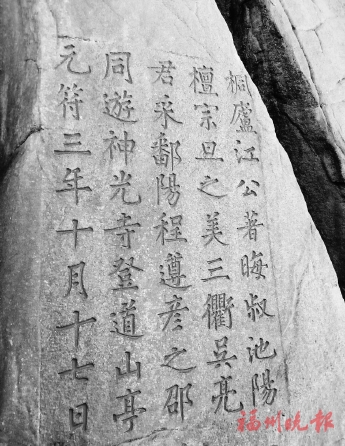 桐廬江公著晦叔池陽
檀宗旦之美三衢吳亮
君采鄱陽程遵彥之邵
同遊神光寺登道山亭
元符三年十月十七日
福州晚报